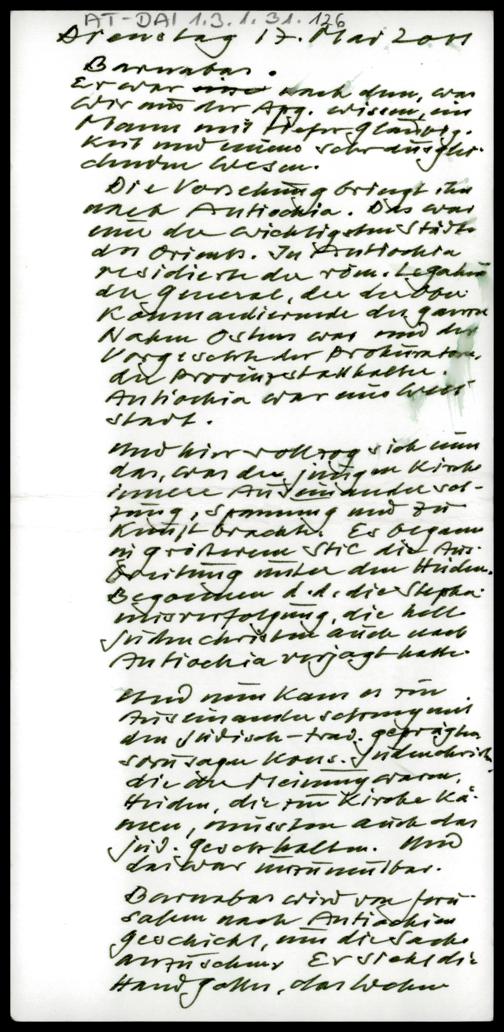 AT-DAI 1.3.1.31.126
Dienstag 17. Mai 2011
Barnabas.
Er war nach dem, was
wir aus der Apg. wissen, ein
Mann mit tiefer Gläubig-
keit und einem sehr ausglei-
chenden Wesen.
Die Vorsehung bringt ihn
nach Antiochia. Das war
eine der wichtigsten Städte
des Orients. In Antiochia
residierte der röm. Legat
der General, der der Ober-
kommandierende des ganzen
Nahen Ostens war und der
Vorgesetzte der Prokuratoren,
der Provinzstatthalter.
Antiochia war eine Welt
stadt.
Und hier vollzog sich nun
das, was der jungen Kirche
innere Auseinanderset-
zung, Spannung und Zu
kunft brachte. Es begann
in größerem Stil die Aus-
breitung unter den Heiden.
Begonnen d. d. die Stepha-
nusverfolgung, die hell.
Judenchristen auch nach
Antiochia verjagt hatte.
Und nun kam es zur
Auseinandersetzung mit
den jüdisch-trad. geprägten
sozusagen kons. Judenchristen,
die der Meinung waren,
Heiden, die zur Kirche kä-
men, müssten auch das
jüd. Gesetz halten. Und
das war unzumutbar.
Barnabas wird von Jeru
salem nach Antiochien
geschickt, um die Sache
anzusehen. Er sieht die
Hand Gottes, das Wehen